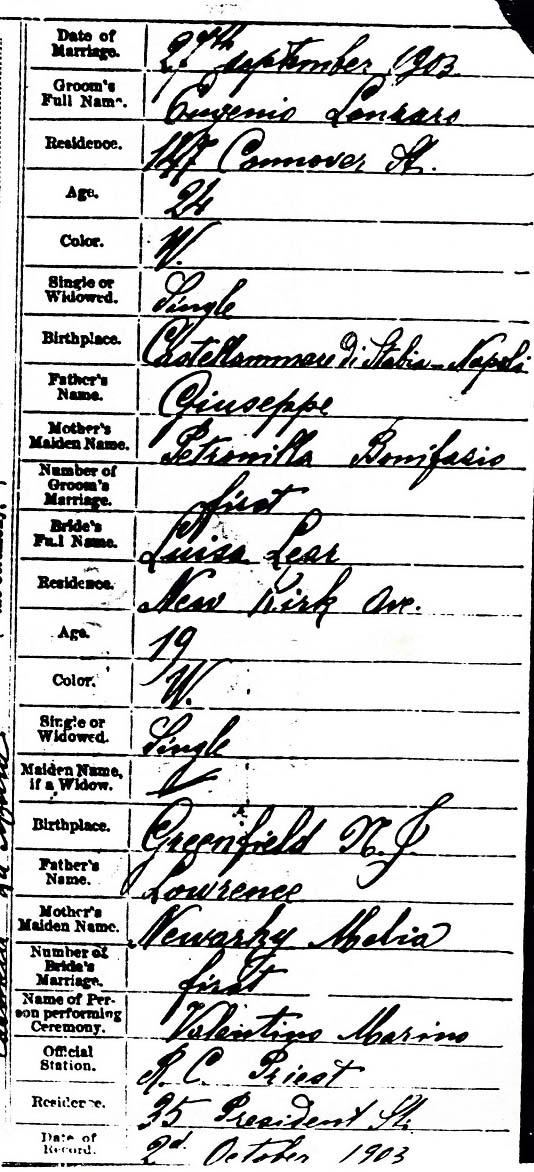 Date of Marriage. 27th September 1903
Groom's Full Name. Eugenio Lonzaro
Residence. 147 Connover St.
Age. 24
Color. W.
Single or Widowed. Single
Birthplace. Castellammare di Stabia - Napoli
Father's Name. Giuseppe
Mother's Maiden Name. Petronilla Bonifasio
Number of Groom's Marriage. first
Bride's Full Name. Luisa Lear
Residence. New Kirk Ave.
Age. 19
Color. W.
Single or Widowed. Single
Maiden Name, if a Widow.
Birthplace. Greenfield N.J.
Father's Name. Lowrence
Mother's Maiden Name. Newarky Melia
Number of Bride's Marriage. first
Name of Person performing Ceremony. Valentino Marino
Official Station. R.C. Priest
Residence. 35 President St.
Date of Record. 2d October 1903